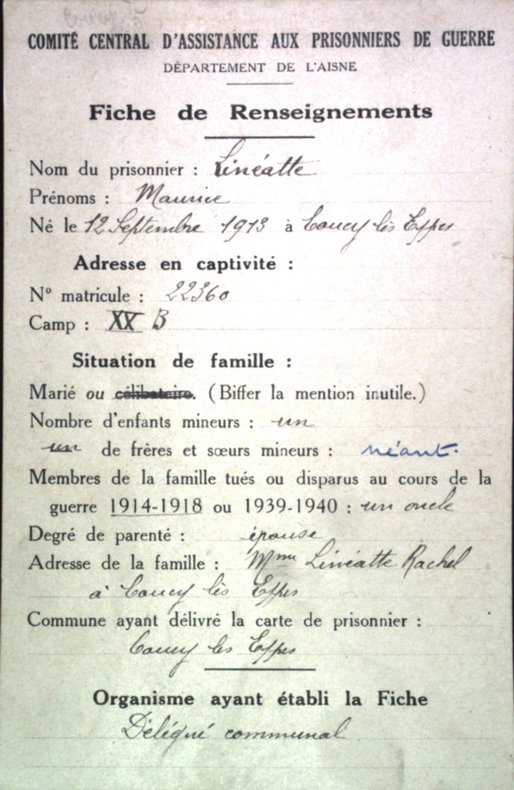 COMITÉ CENTRAL D'ASSISTANCE AUX PRISONNIERS DE GUERRE
DÉPARTEMENT DE L'AISNE
Fiche de Renseignements
Nom du prisonnier : Linéatte
Prénoms : Maurice
Né le 12 Septembre 1913 à Coucy lès Eppes
Adresse en captivité :
N° matricule : 22360
Camp : XX B
Situation de famille :
Marié ou célibataire. (Biffer la mention inutile.)
Nombre d'enfants mineurs : un
un de frères et sœurs mineurs : néant.
Membres de la famille tués ou disparus au cours de la
guerre 1914-1918 ou 1939-1940 : un oncle
Degré de parenté : épouse
Adresse de la famille : Mme Linéatte Rachel
à Coucy lès Eppes
Commune ayant délivré la carte de prisonnier :
Coucy les Eppes
Organisme ayant établi la Fiche
Délégué communal